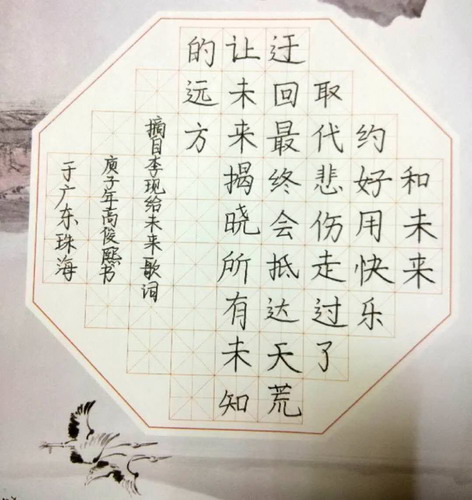 和未来
约好用快乐
取代悲伤走过了
迂回最终会抵达天荒
让未来揭晓所有未知
的远方
摘自李现给未来歌词
庚子年高俊熙书
于广东珠海